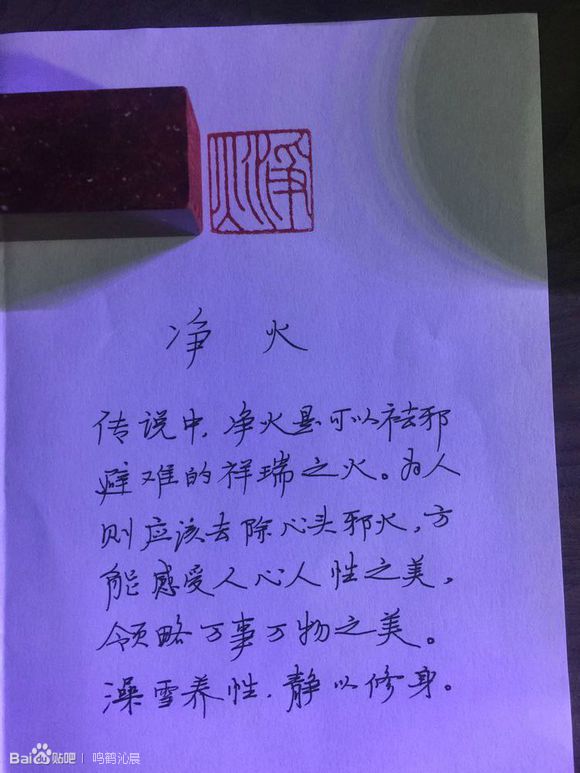 净火
净 火
传说中,净火是可以祛邪
避难的祥瑞之火。为人
则应该去除心头邪火,方
能感受人心人性之美,
领略万事万物之美。
澡雪养性,静以修身。
Bai贴吧 | 鸣鹤沁晨